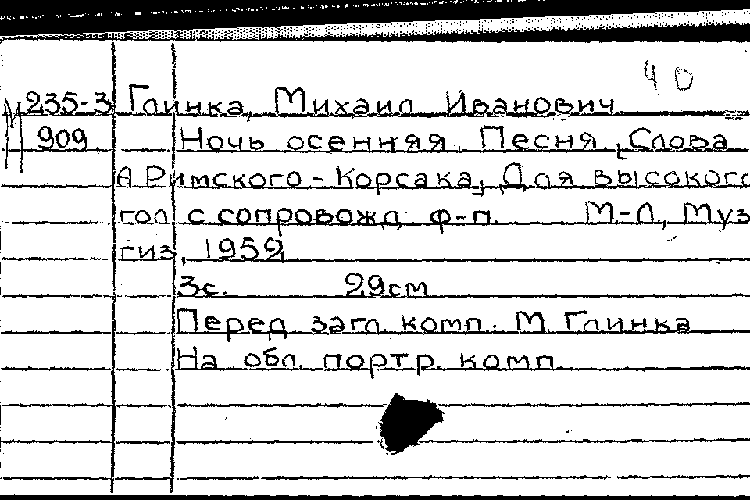 40
М 235-3 Глинка, Михаил Иванович
909 Ночь осенняя. Песня, [Слова
А Римского-Корсака], Для высокого
гол с сопровожд ф-п. М-Л, Муз
гиз, 1952
3с. 29см
Перед загл. комп. М Глинка
На обл. портр. комп.